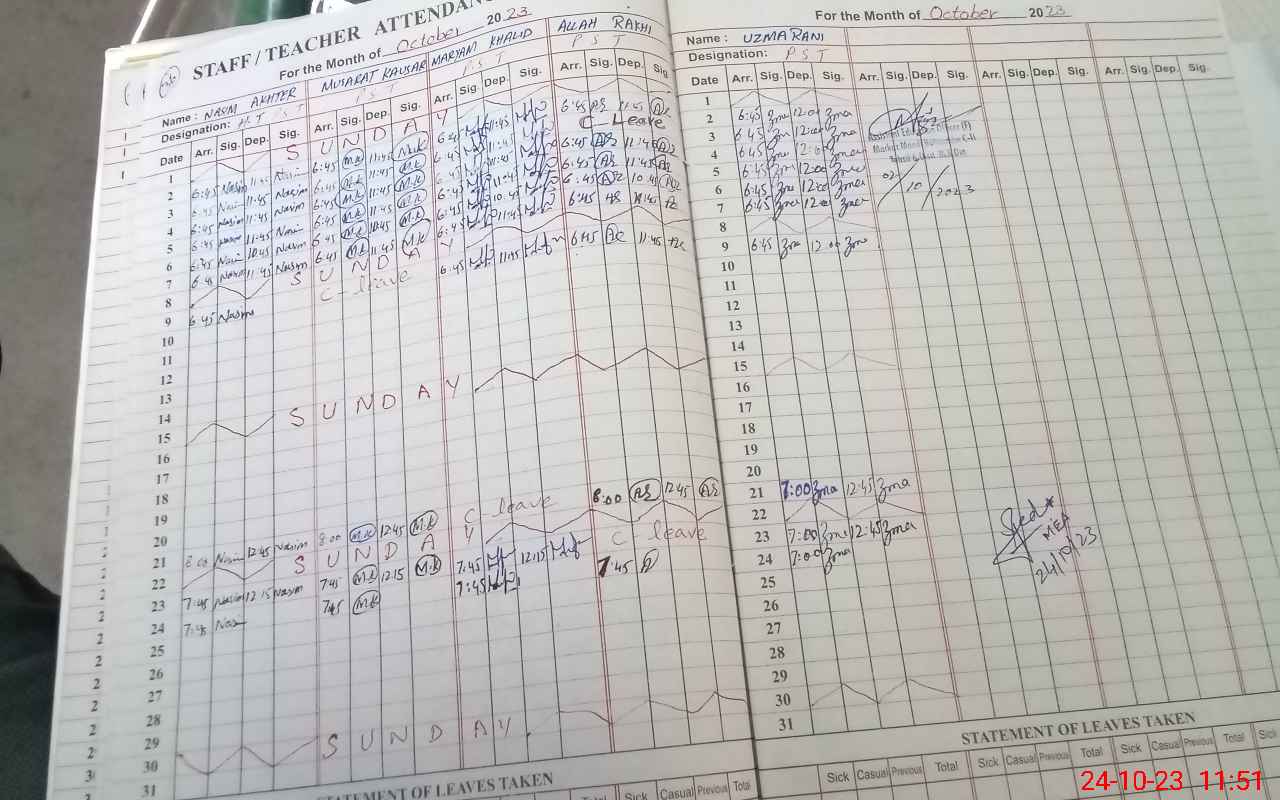 STAFF / TEACHER ATTENDANC
For the Month of October 2023
Name : NASIM AKHTER MUSARAT KAUSAR MARYAM KHALID ALLAH RAKHI
Designation: H T P S T P S T P S T P S T
Date Arr. Sig. Dep. Sig. Arr. Sig. Dep. Sig. Arr. Sig. Dep. Sig. Arr. Sig. Dep. Sig
1 S U N D A Y
2 6:45 Nasim 11:45 Nasim 6:45 M.K 11:45 M.K 6:45 11:45 6:45 11:45
3 6:45 Nasim 11:45 Nasim 6:45 M.K 11:45 M.K 6:45 11:45 C - Leave
4 6:45 Nasim 11:45 Nasim 6:45 M.K 11:45 M.K 6:45 11:45 6:45 11:45
5 6:45 Nasim 11:45 Nasim 6:45 M.K 11:45 M.K 6:45 11:45 6:45 11:45
6 6:45 Nasim 10:45 Nasim 6:45 M.K 10:45 M.K 6:45 10:45 6:45 10:45
7 6:45 Nasim 11:45 Nasim 6:45 M.K 11:45 M.K 6:45 11:45 6:45
8 S U N D A Y
9 6:45 Nasim C - leave 6:45 11:45 6:45 11:45
10
11
12
13
14
15 S U N D A Y
16
17
18
19
20
21 8:00 Nasim 12:45 Nasim 8:00 M.K 12:45 M.K C - leave 8:00 12:45
22 S U N D A Y
23 7:45 Nasim 12:15 Nasim 7:45 M.K 12:15 M.K 7:45 12:15 C - leave
24 7:45 7:45 M.K 7:45 7:45
25
26
27
28
29 S U N D A Y
30
31
STATEMENT OF LEAVES TAKEN
Sick Casual Previous Total
For the Month of October 2023
Name : UZMA RANI
Designation: P S T
Date Arr. Sig. Dep. Sig. Arr. Sig. Dep. Sig. Arr. Sig. Dep. Sig. Arr. Sig. Dep. Sig.
1
2 6:45 12:00
3 6:45 12:00
4 6:45 12:00
5 6:45 12:00
6 6:45 12:00
7 6:45 12:00
8
9 6:45 12:00
10
11
12
13
14
15
16
17
18
19
20
21 7:00 12:45
22
23 7:00 12:45
24 7:00
25
26
27
28
29
30
31
02/10/2023
MEA
24/10/23
STATEMENT OF LEAVES TAKEN
Sick Casual Previous Total Sick Casual Previous Total Sick
24-10-23 11:51